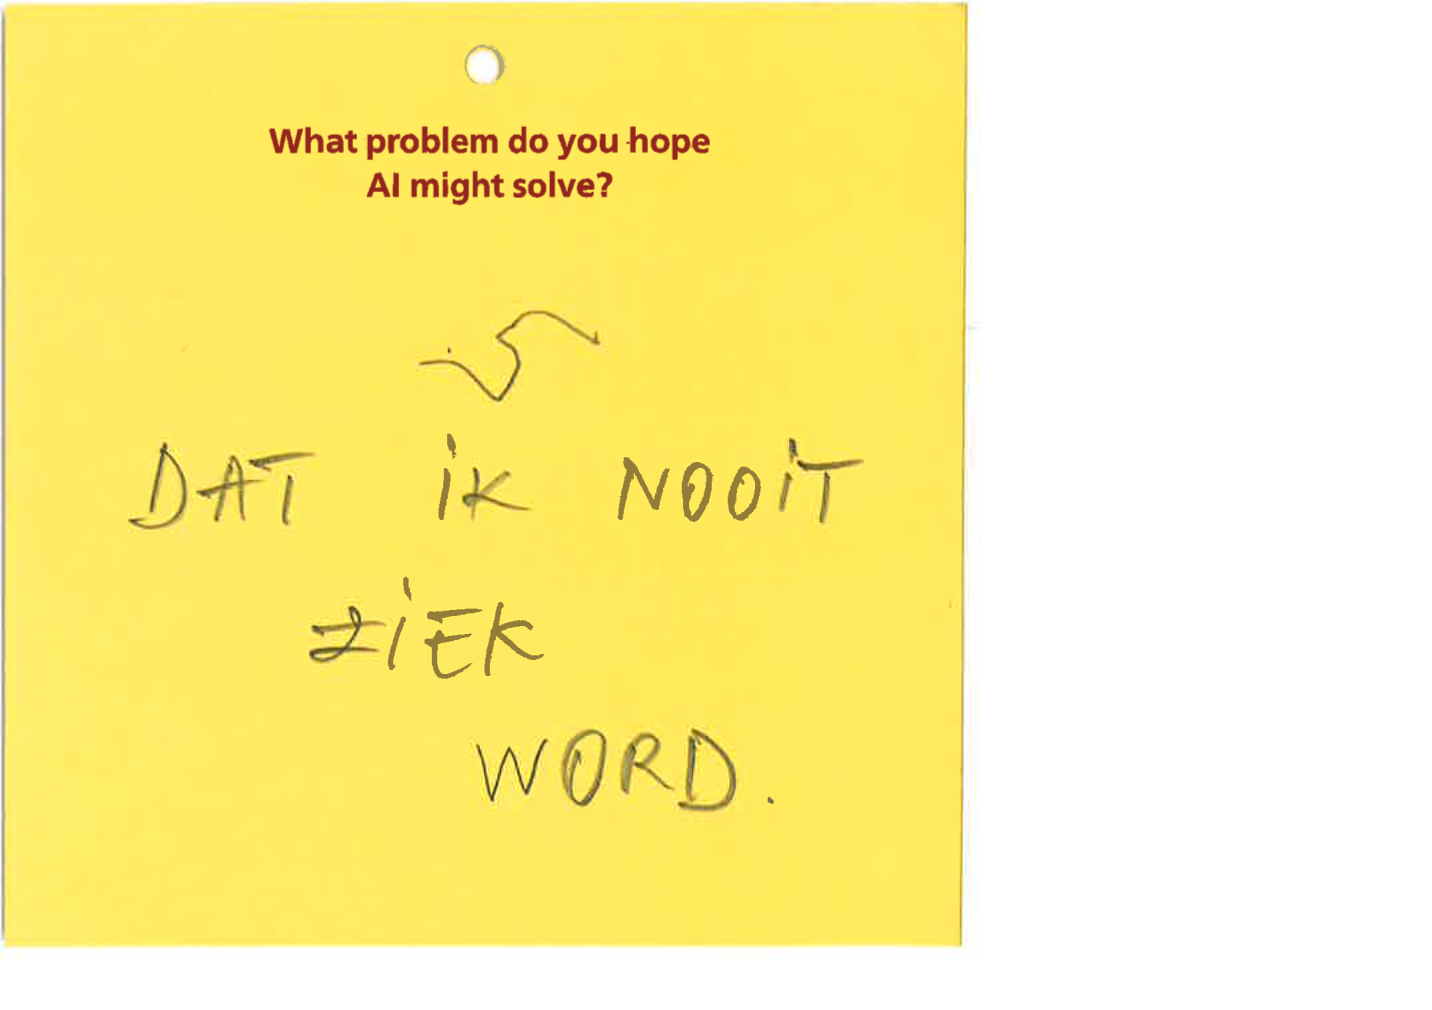 What problem do you hope
AI might solve?
DAT iK NOOiT
ZiEK
WORD.